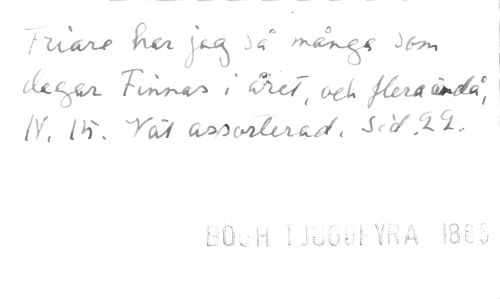 Friare har jag så många som
dagar Finnas i året, och flera ändå,
N. 15. Väl assorterad. Sid. 22.
BÖGH TJUGUFYRA 1865